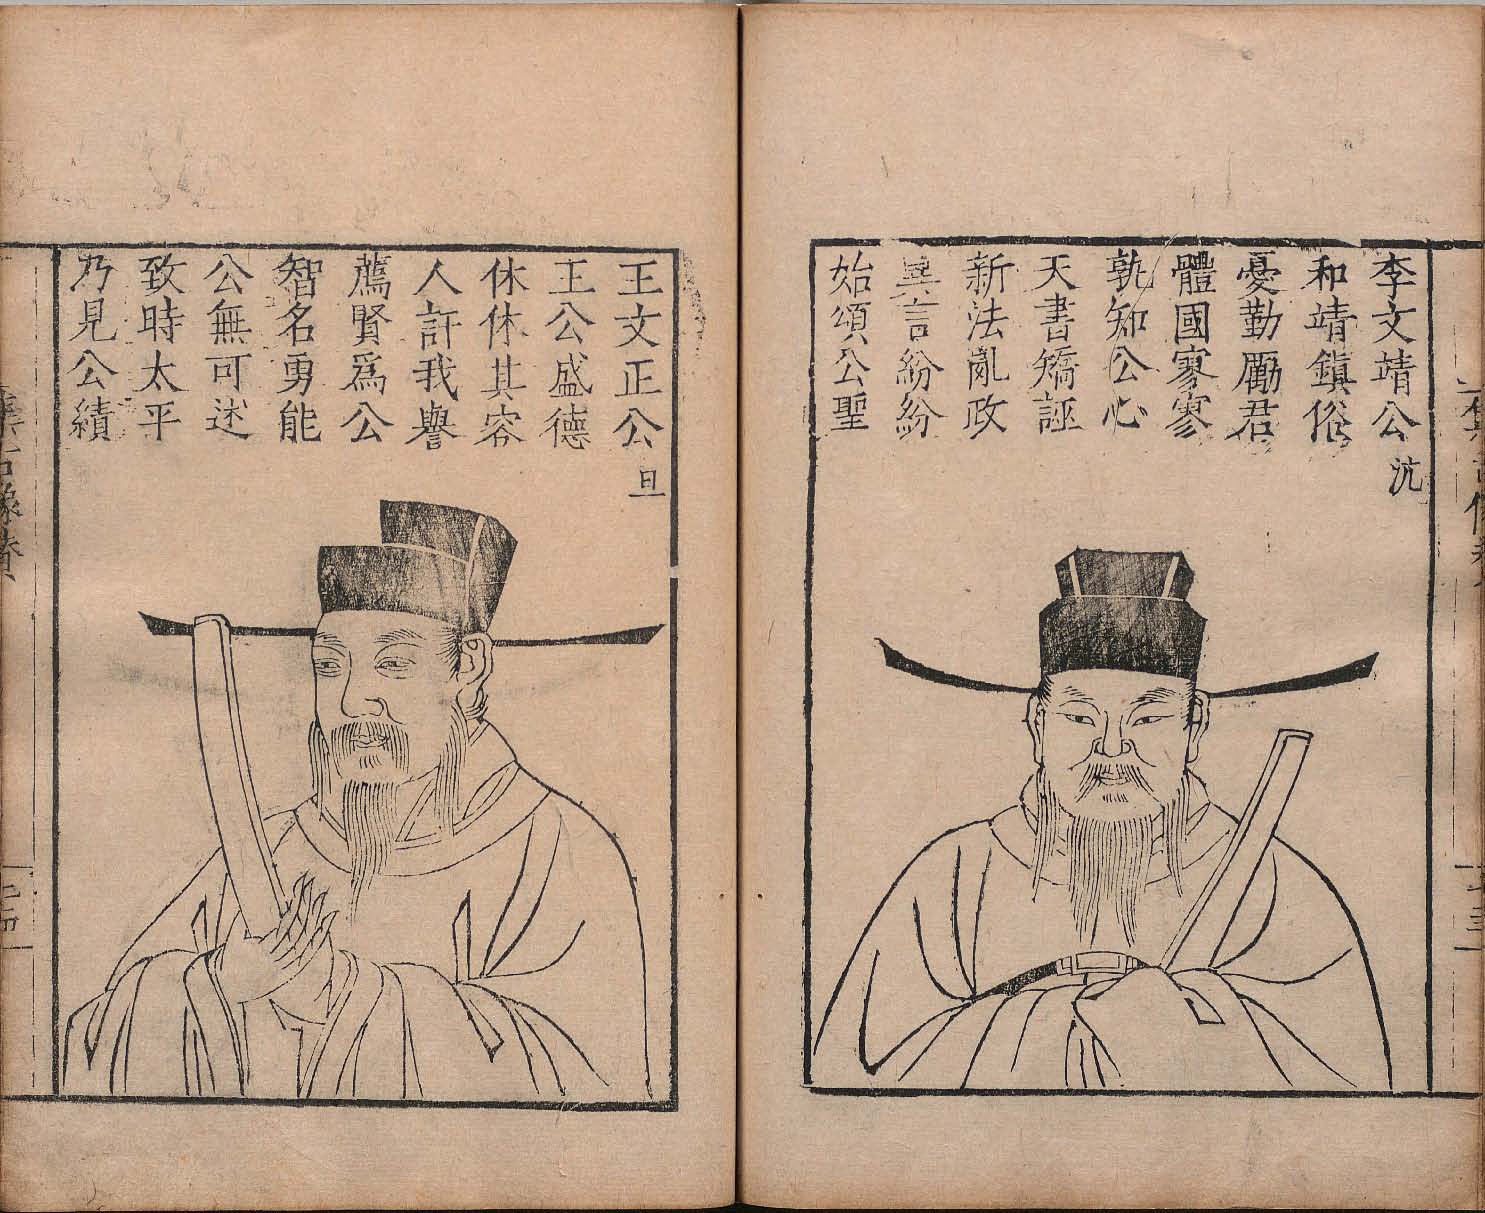 李文靖公 沆
和靖鎮俗
憂勤勵君
體國寥寥
孰知公心
天書矯誣
新法亂政
異言紛紛
始頌公聖
王文正公 旦
王公盛德
休休其容
人訐我譽
薦賢爲公
智名勇能
公無可述
致時太平
乃見公績